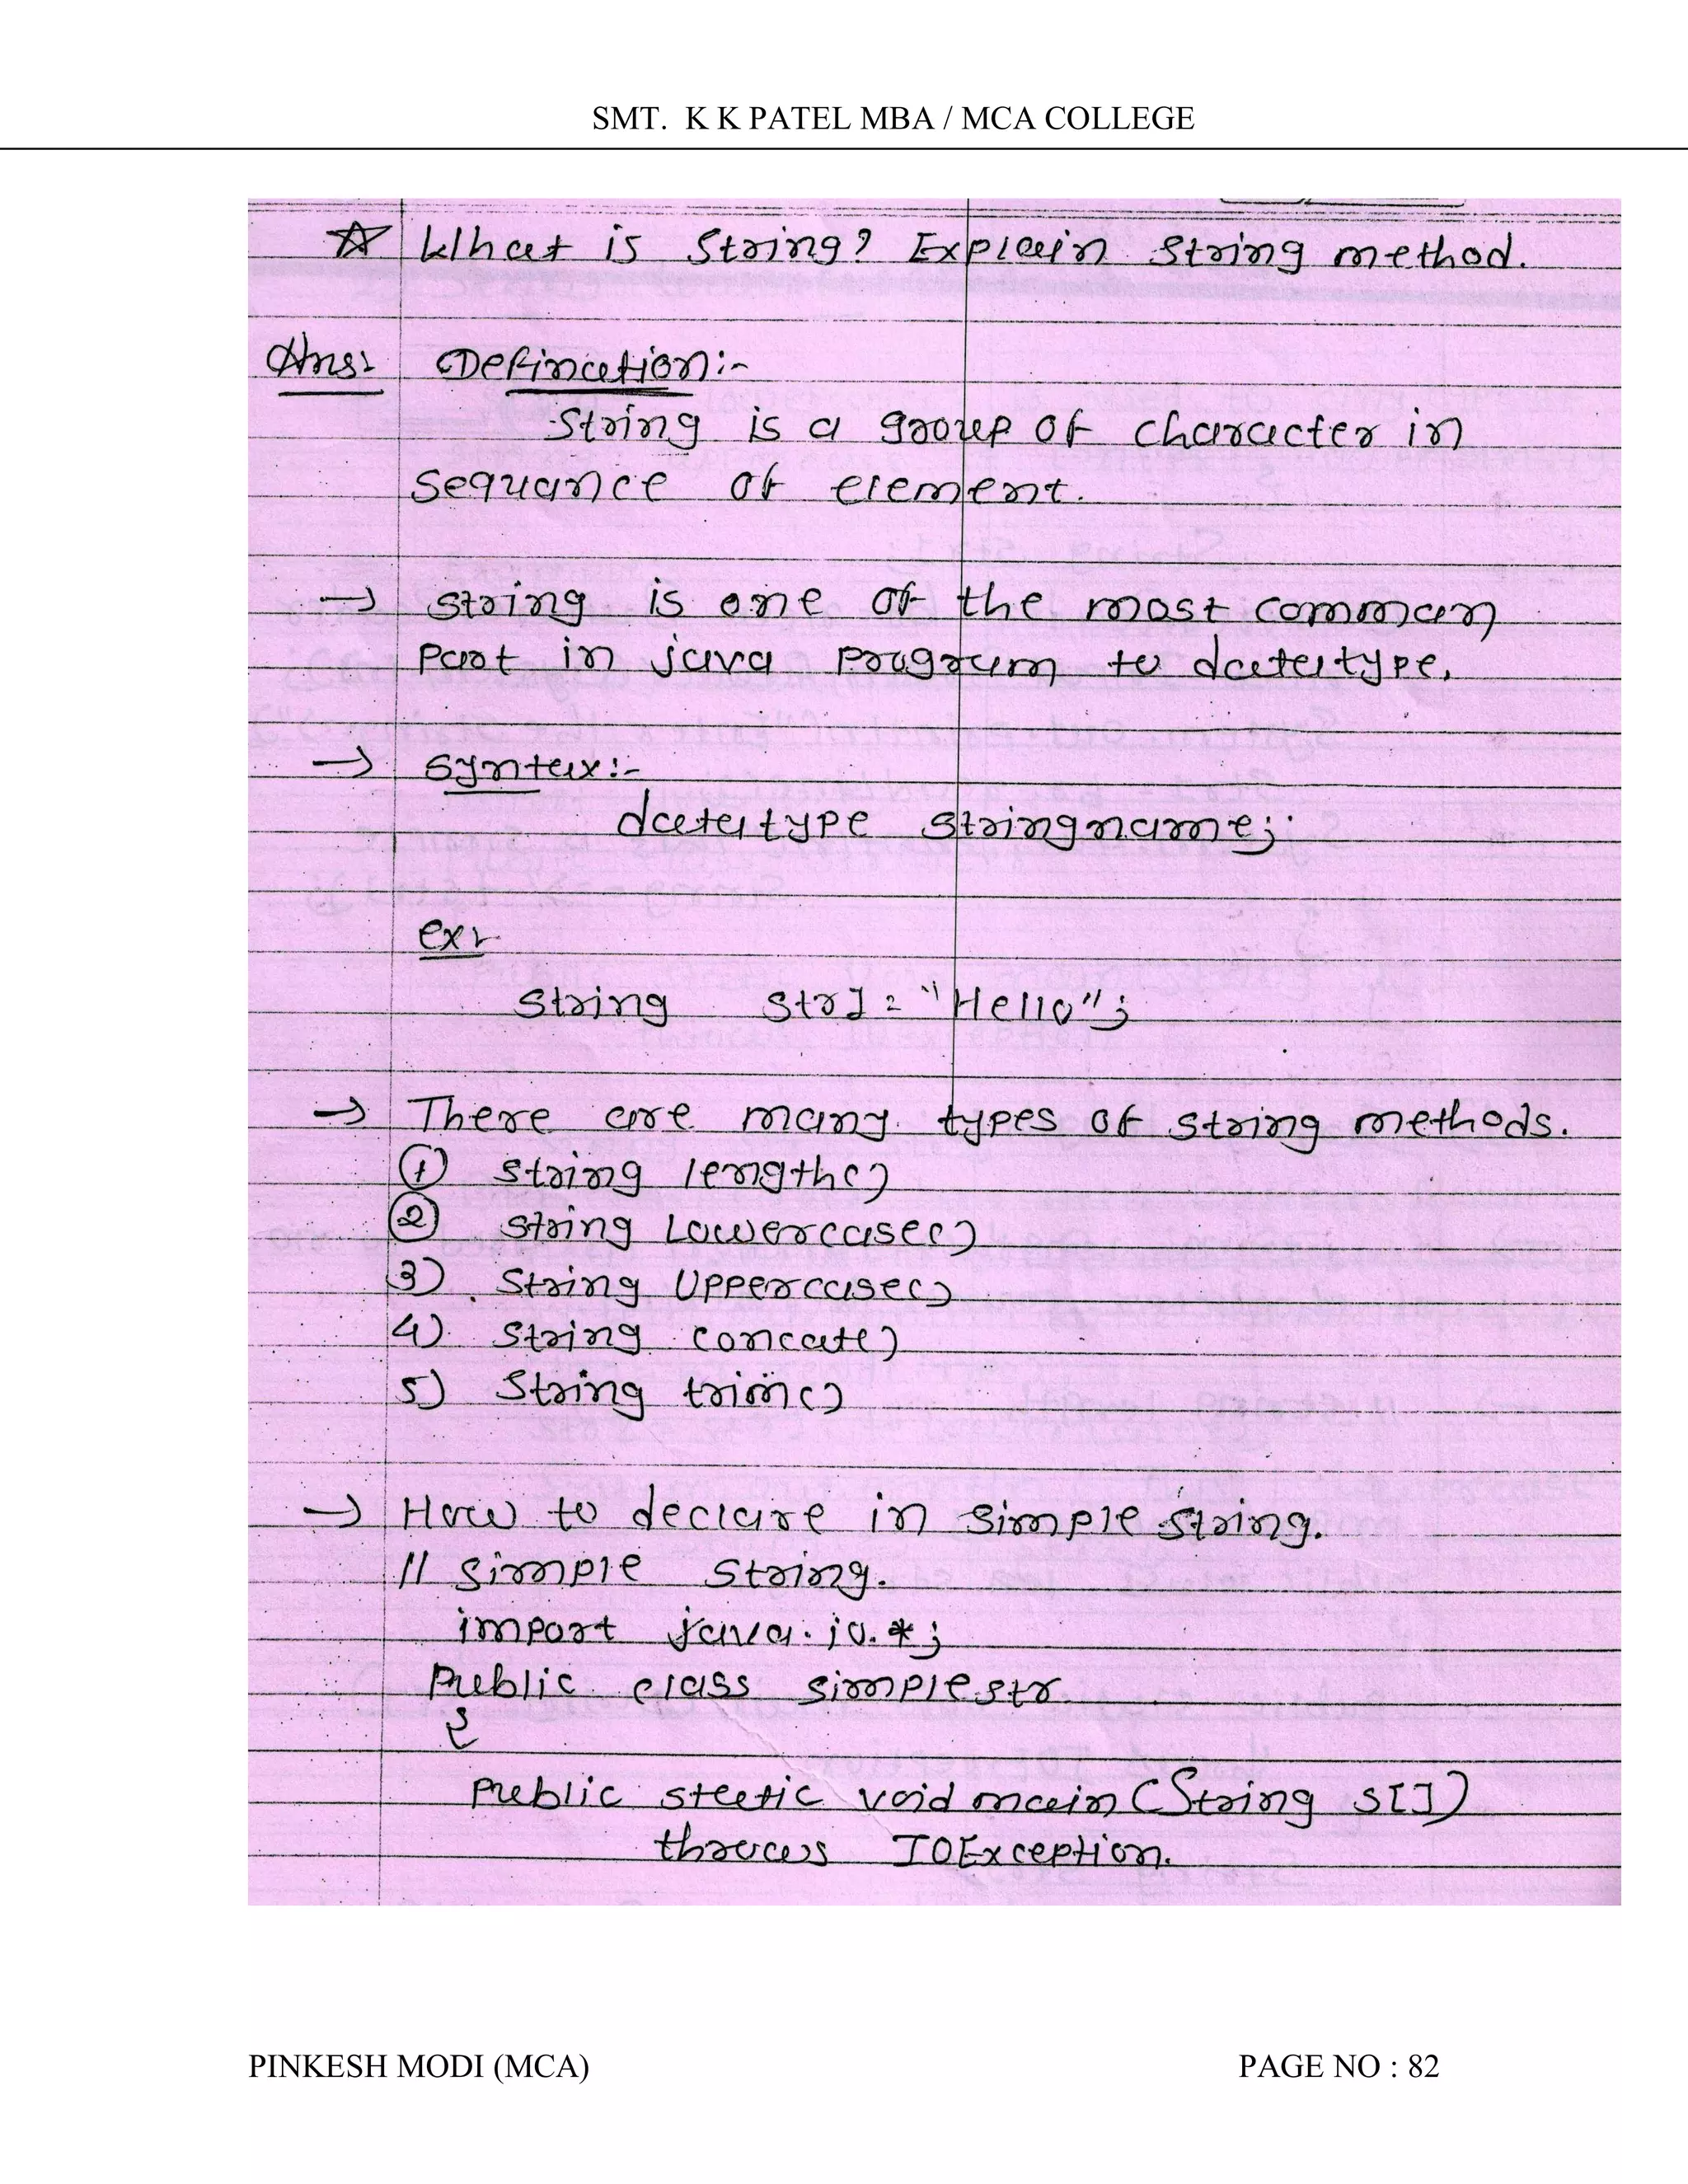 SMT. K K PATEL MBA / MCA COLLEGE
☆ What is String? Explain String method.
Ans:
Defination:-
String is a group of character in
sequance of element.
→ string is one of the most common
part in java program to datatype.
→ syntax:-
datatype stringname;
ex:
String Str1 = "Hello";
→ There are many types of string methods.
① string length()
② string Lowercase()
3) String Uppercase()
4) String concate)
5) String trim()
→ How to declare in simple string.
// simple string.
import java.io.*;
Public class simplestr
{
Public static void main (String s[])
throws IOException.
PINKESH MODI (MCA)
PAGE NO : 82